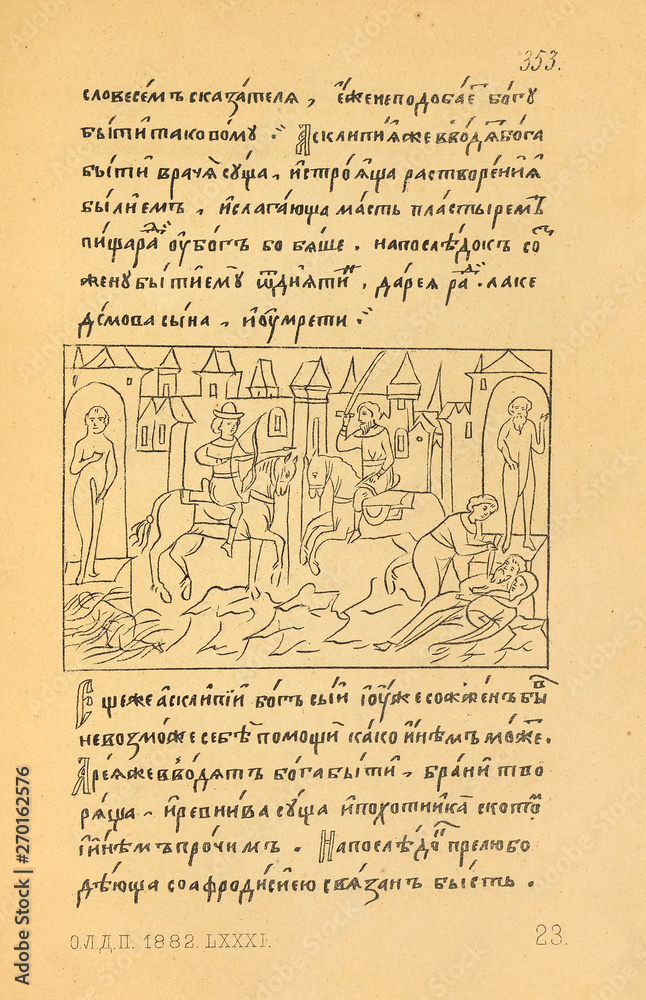 353.
словесемъ сказателя, е́же неподобае́ бо́гу
бы́ти таково́му. Асклипия же вво́дѧ бо́га
бы́ти врача̀ су́ща, и стро́ѧща растворе́ниѧ
бы́лиемъ, и слага́юща ма́сть пла́стыремъ
убо́гъ бо бѧ́ше. напослѣ́докъ со
жену бы́ти ему̀ ѿ дарея ра. лаке
де́мова сы́на, и умре́ти.
Еще же асклипі́й бо́гъ сы́й і у́же сожже́нъ бы́
невозмо́же себѣ̀ помощѝ ка́ко и и́нѣмъ мо́же.
Аре́я же вво́дятъ бо́га бы́ти, бра́ни тво
ря́ща, и ревни́ва су́ща и похо́тника ското́
і и́нѣмъ про́чимъ. Напослѣ́до прелюбо
дѣ́юща со афродисі́ею свя́занъ бы́сть.
О.Л.Д.П. 1882. LXXXI.
23.
Adobe Stock | #270162576
Adobe Stock